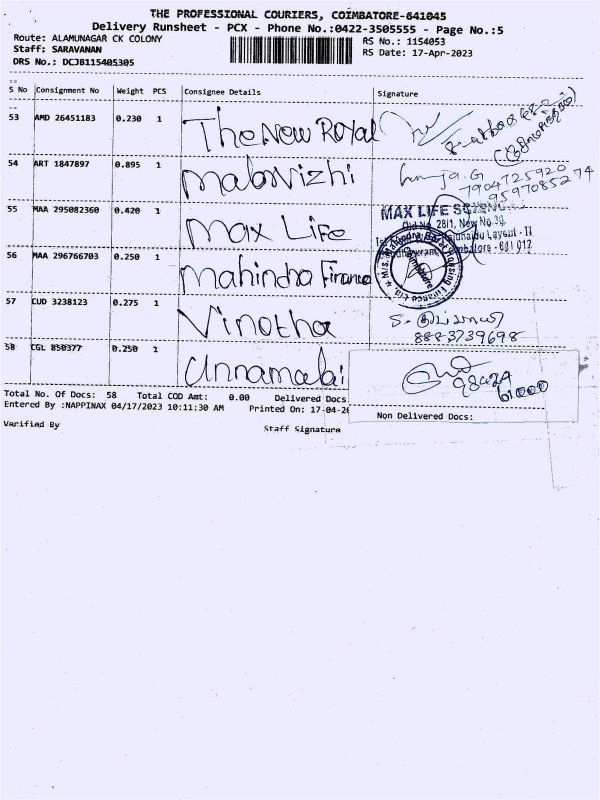 THE PROFESSIONAL COURIERS, COIMBATORE-641045
Delivery Runsheet - PCX - Phone No.:0422-3505555 - Page No.:5
Route: ALAMUNAGAR CK COLONY
RS No.: 1154053
Staff: SARAVANAN
RS Date: 17-Apr-2023
DRS No.: DCJB115405305
S No Consignment No Weight PCS Consignee Details Signature
53 AMD 26451183 0.230 1 The New Royal
54 ART 1847897 0.895 1 Malarvizhi
7904725920
9597085274
55 MAA 295082360 0.420 1 Max Life
MAX LIFE
Old No. 28/1, New No.30,
Layout - II
Coimbatore - 641 012
56 MAA 296766703 0.250 1 Mahindra Finance
57 CUD 3238123 0.275 1 Vinotha
8883739698
58 CGL 850377 0.250 1 Unnamalai
98424
61000
Total No. Of Docs: 58 Total COD Amt: 0.00 Delivered Docs
Entered By :NAPPINAX 04/17/2023 10:11:30 AM Printed On: 17-04-20
Non Delivered Docs:
Verified By Staff Signature